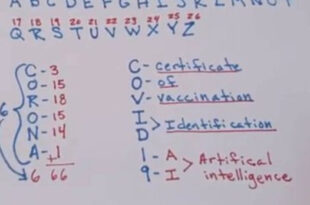 A B C D E F G H I J K L M N O P
17 18 19 20 21 22 23 24 25 26
Q R S T U V W X Y Z
C - 3
O - 15
R - 18
O - 15
N - 14
A - +1
6 66
C - certificate
O - of
V - vaccination
I > Identification
D
1 - A > Artifical
9 - I intelligence